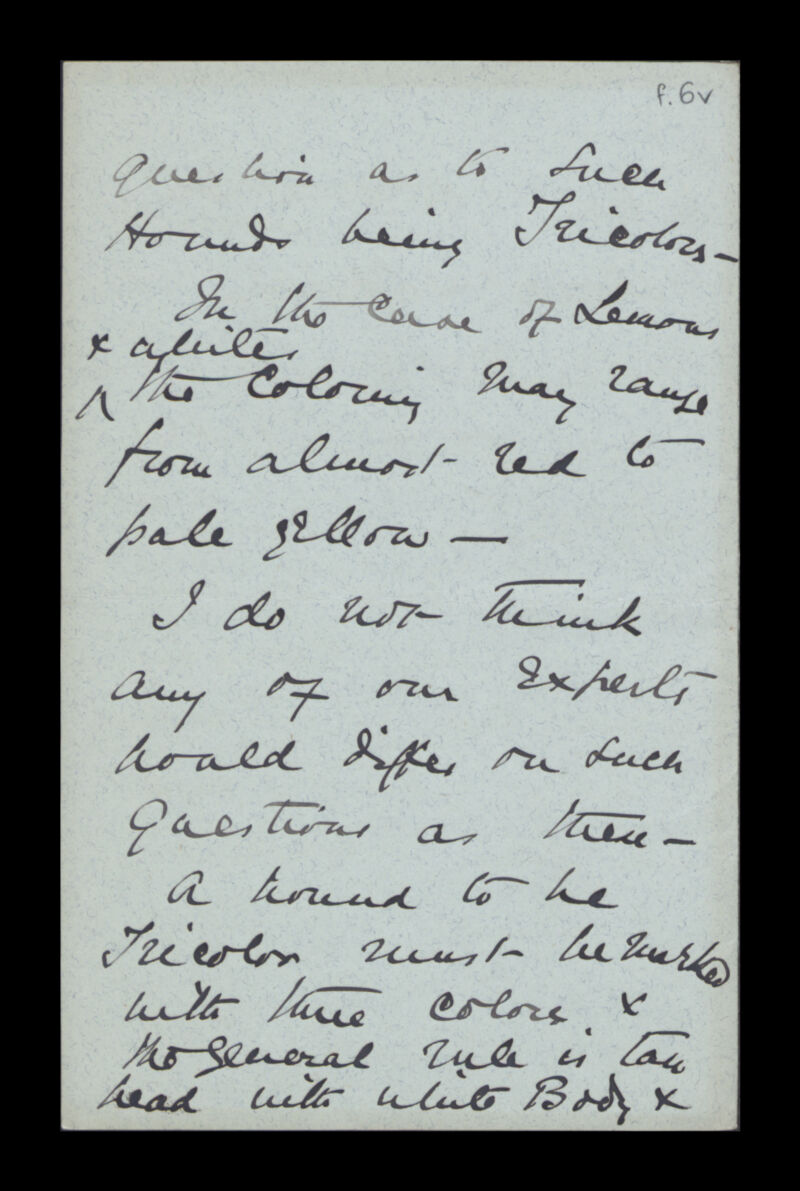 f.6v
question as to such
Hounds being Tricolors —
In the case of Lemons
& whites
the Coloring may range
from almost red to
pale yellow —
I do not think
any of our Experts
would differ on such
Questions as these —
A hound to be
Tricolor must be marked
with three colors &
the general rule is tan
head with white Body &